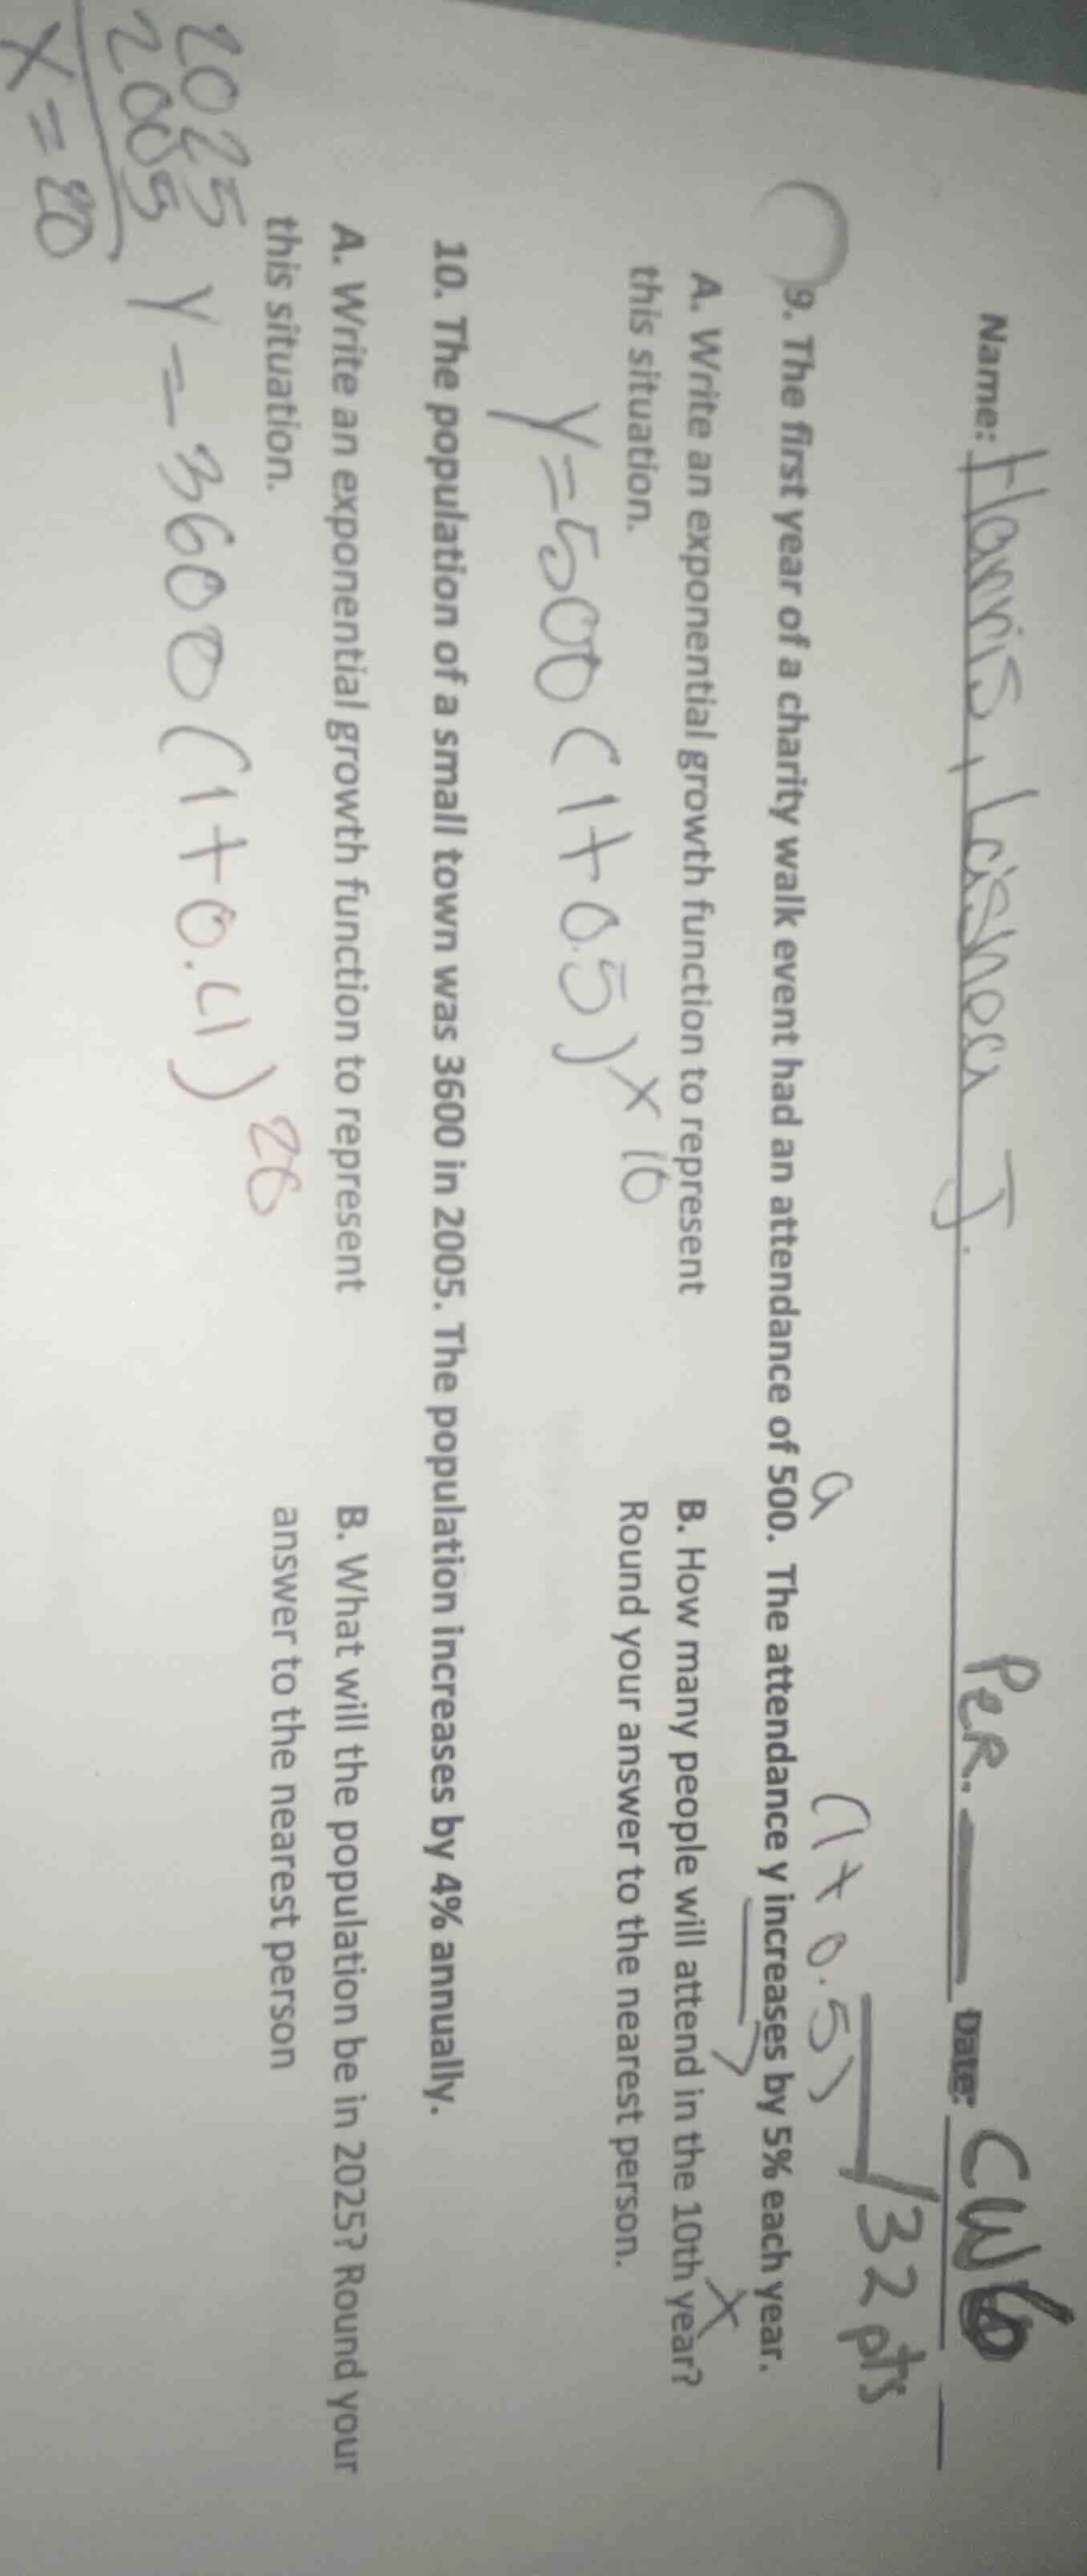 Name: Harris, Laishea J. PER. Date: CW6
/32 pts
a (1+0.5)
9. The first year of a charity walk event had an attendance of 500. The attendance y increases by 5% each year.
A. Write an exponential growth function to represent
this situation.
y=500(1+0.5)x 10
B. How many people will attend in the 10th year?
x
Round your answer to the nearest person.
10. The population of a small town was 3600 in 2005. The population increases by 4% annually.
A. Write an exponential growth function to represent
this situation.
y=3600(1+0.4)20
2025
2005
x=20
B. What will the population be in 2025? Round your
answer to the nearest person